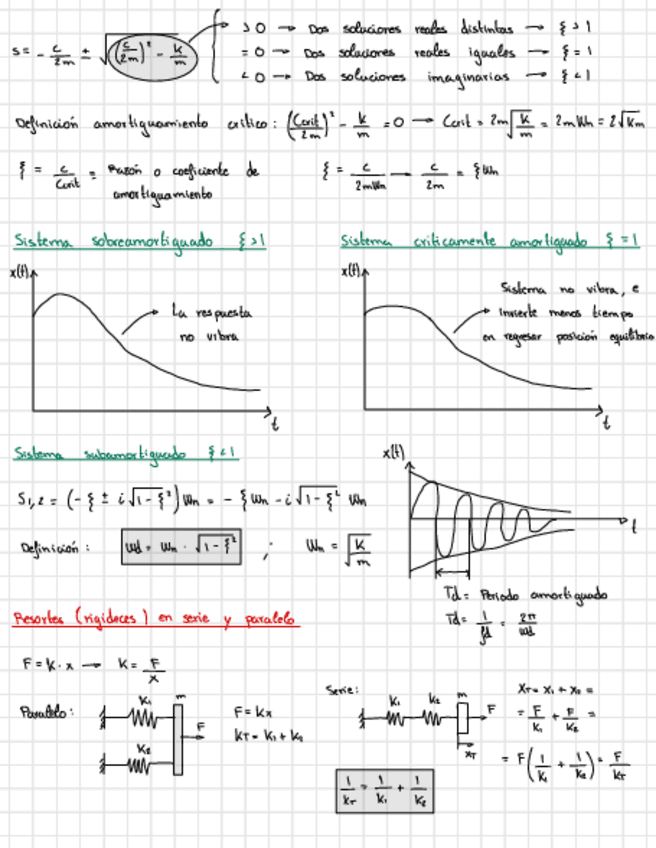 > 0 → Dos soluciones reales distintas → ξ > 1
s = - c/2m ± √((c/2m)² - k/m) = 0 → Dos soluciones reales iguales → ξ = 1
< 0 → Dos soluciones imaginarias → ξ < 1
Definición amortiguamiento crítico: (Ccrit/2m)² - k/m = 0 → Ccrit = 2m√(k/m) = 2mWn = 2√km
ξ = c/Ccrit = Razón o coeficiente de amortiguamiento
ξ = c/2mWn → c/2m = ξWn
Sistema sobreamortiguado ξ > 1
Sistema críticamente amortiguado ξ = 1
x(t)
La respuesta
no vibra
t
x(t)
Sistema no vibra, e
invierte menos tiempo
en regresar posición equilibrio
t
Sistema subamortiguado ξ < 1
S1,2 = (-ξ ± i√(1-ξ²)) Wn = - ξWn - i√(1-ξ²) Wn
Definición: Wd = Wn · √(1-ξ²) ; Wn = √(k/m)
x(t)
t
Td = Periodo amortiguado
Td = 1/fd = 2π/Wd
Resortes (rigideces) en serie y paralelo
F = k · x → K = F/x
Paralelo:
K1
m
F
K2
F = Kx
KT = K1 + K2
Serie:
K1
K2
m
F
XT
XT = X1 + X2 =
= F/K1 + F/K2 =
= F(1/K1 + 1/K2) = F/KT
1/KT = 1/K1 + 1/K2